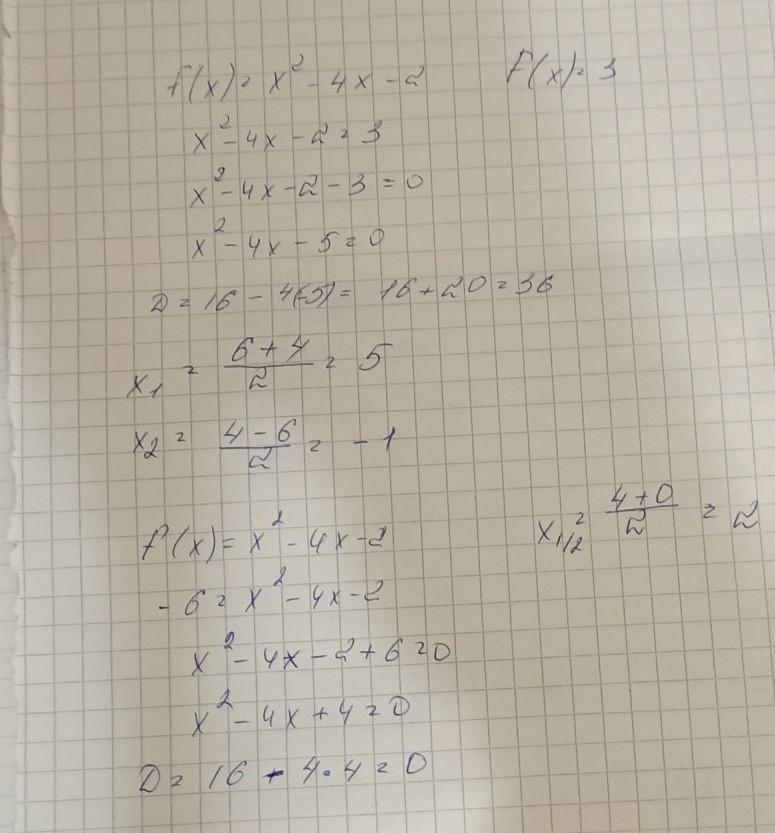 f(x) = x² - 4x - 2    f(x) = 3
x² - 4x - 2 = 3
x² - 4x - 2 - 3 = 0
x² - 4x - 5 = 0
D = 16 - 4(-5) = 16 + 20 = 36
x₁ = (6 + 4)/2 = 5
x₂ = (4 - 6)/2 = -1
f(x) = x² - 4x - 2
x₁/₂ = (4 + 0)/2 = 2
-6 = x² - 4x - 2
x² - 4x - 2 + 6 = 0
x² - 4x + 4 = 0
D = 16 - 4·4 = 0